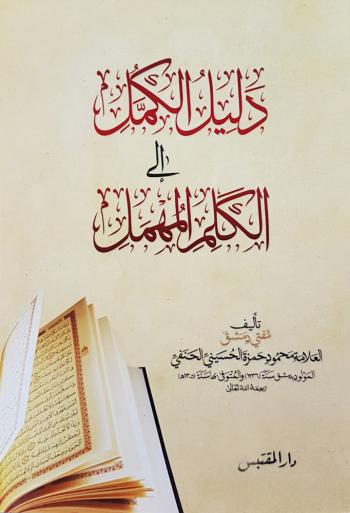 دَلِيلُ الكُمَّل
إلى
الكَلِمِ المُهْمَل
تأليف
مُفتي دمشق
العلامة محمود حمزة الحُسيني الحنفي
المولود بدمشق سنة (١٢٣٦) والمتوفى بها سنة (١٣٠٥هـ)
رحمه الله تعالى
دار المقتبس